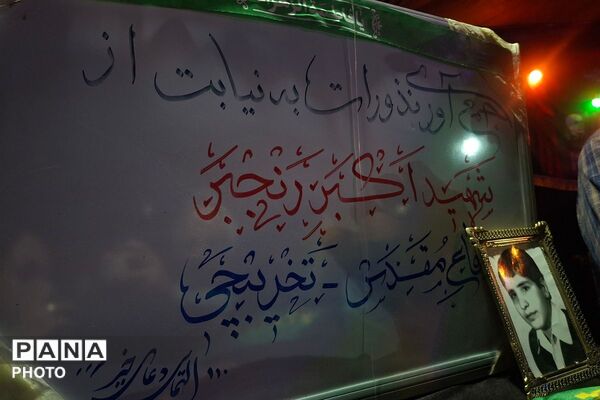 یا فاطمة الزهرا
جمع آوری نذورات به نیابت از
شهید اکبر رنجبر
دفاع مقدس - تخریبچی
... التماس دعای خیر ...
PANA
PHOTO